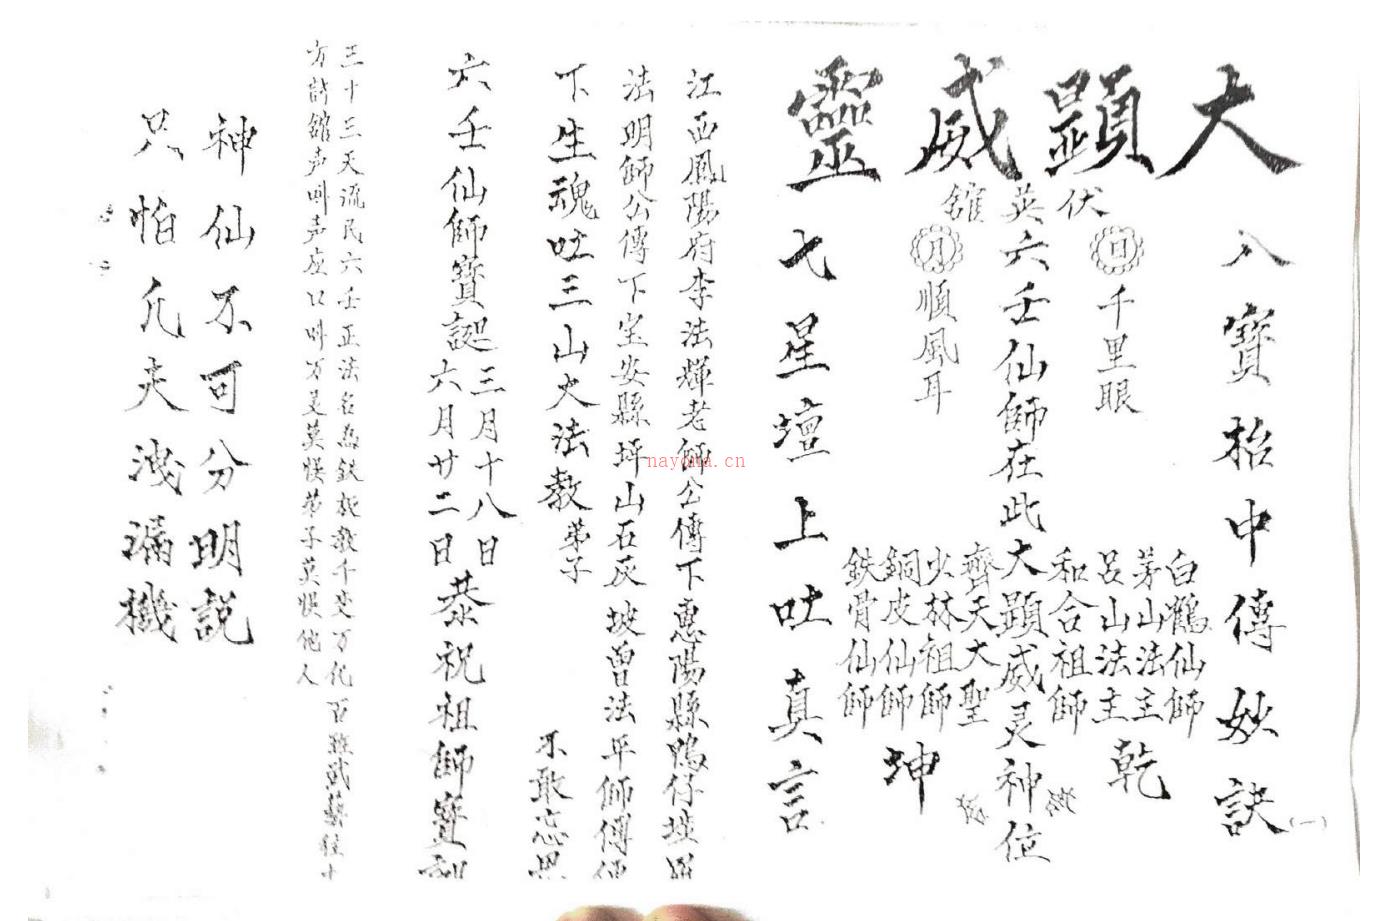 大顯威靈
八寶枱中傳妙訣
(一)
伏英舘
日
千里眼
白鶴仙師
茅山法主
呂山法主
和合祖師
乾
六壬仙師在此大顯威灵神位
月
順風耳
齊天大聖
火林祖師
銅皮仙師
鉄骨仙師
坤
七星壇上吐真言
江西鳳陽府李法輝老師公傳下惠陽縣鴨仔埗
法明師公傳下宝安縣坪山石灰坡曾法平師傅
下生魂吐三山大法教弟子
不敢忘
六壬仙師寶誕
三月十八日
六月廿二日
恭祝祖師寶
三十三天流民六壬正法名為鉄板教千变万化百
方舘声叫声应口叫万灵莫悮弟子莫悮他人
神仙不可分明説
只怕凢夫洩漏機
nayona.cn